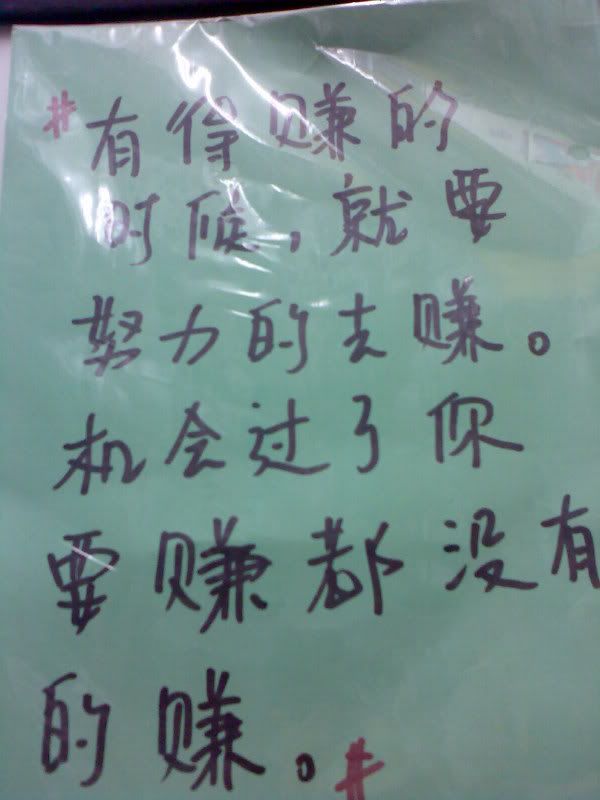 #有得赚的
时候,就要
努力的去赚。
机会过了你
要赚都没有
的赚。#